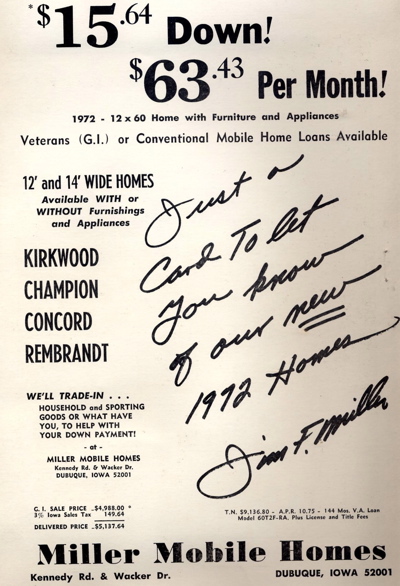 *$15.64 Down!
$63.43 Per Month!
1972 - 12 x 60 Home with Furniture and Appliances
Veterans (G.I.) or Conventional Mobile Home Loans Available
12' and 14' WIDE HOMES
Available WITH or
WITHOUT Furnishings
and Appliances
KIRKWOOD
CHAMPION
CONCORD
REMBRANDT
Just a
Card To let
you know
of our new
1972 Homes
Jim F. Miller
WE'LL TRADE-IN . . .
HOUSEHOLD and SPORTING
GOODS OR WHAT HAVE
YOU, TO HELP WITH
YOUR DOWN PAYMENT!
- at -
MILLER MOBILE HOMES
Kennedy Rd. & Wacker Dr.
DUBUQUE, IOWA 52001
G. I. SALE PRICE ..$4,988.00 *
3% Iowa Sales Tax 149.64
DELIVERED PRICE ..$5,137.64
T.N. $9,136.80 - A.P.R. 10.75 - 144 Mos. V.A. Loan
Model 60T2F-RA. Plus License and Title Fees
Miller Mobile Homes
Kennedy Rd. & Wacker Dr. DUBUQUE, IOWA 52001